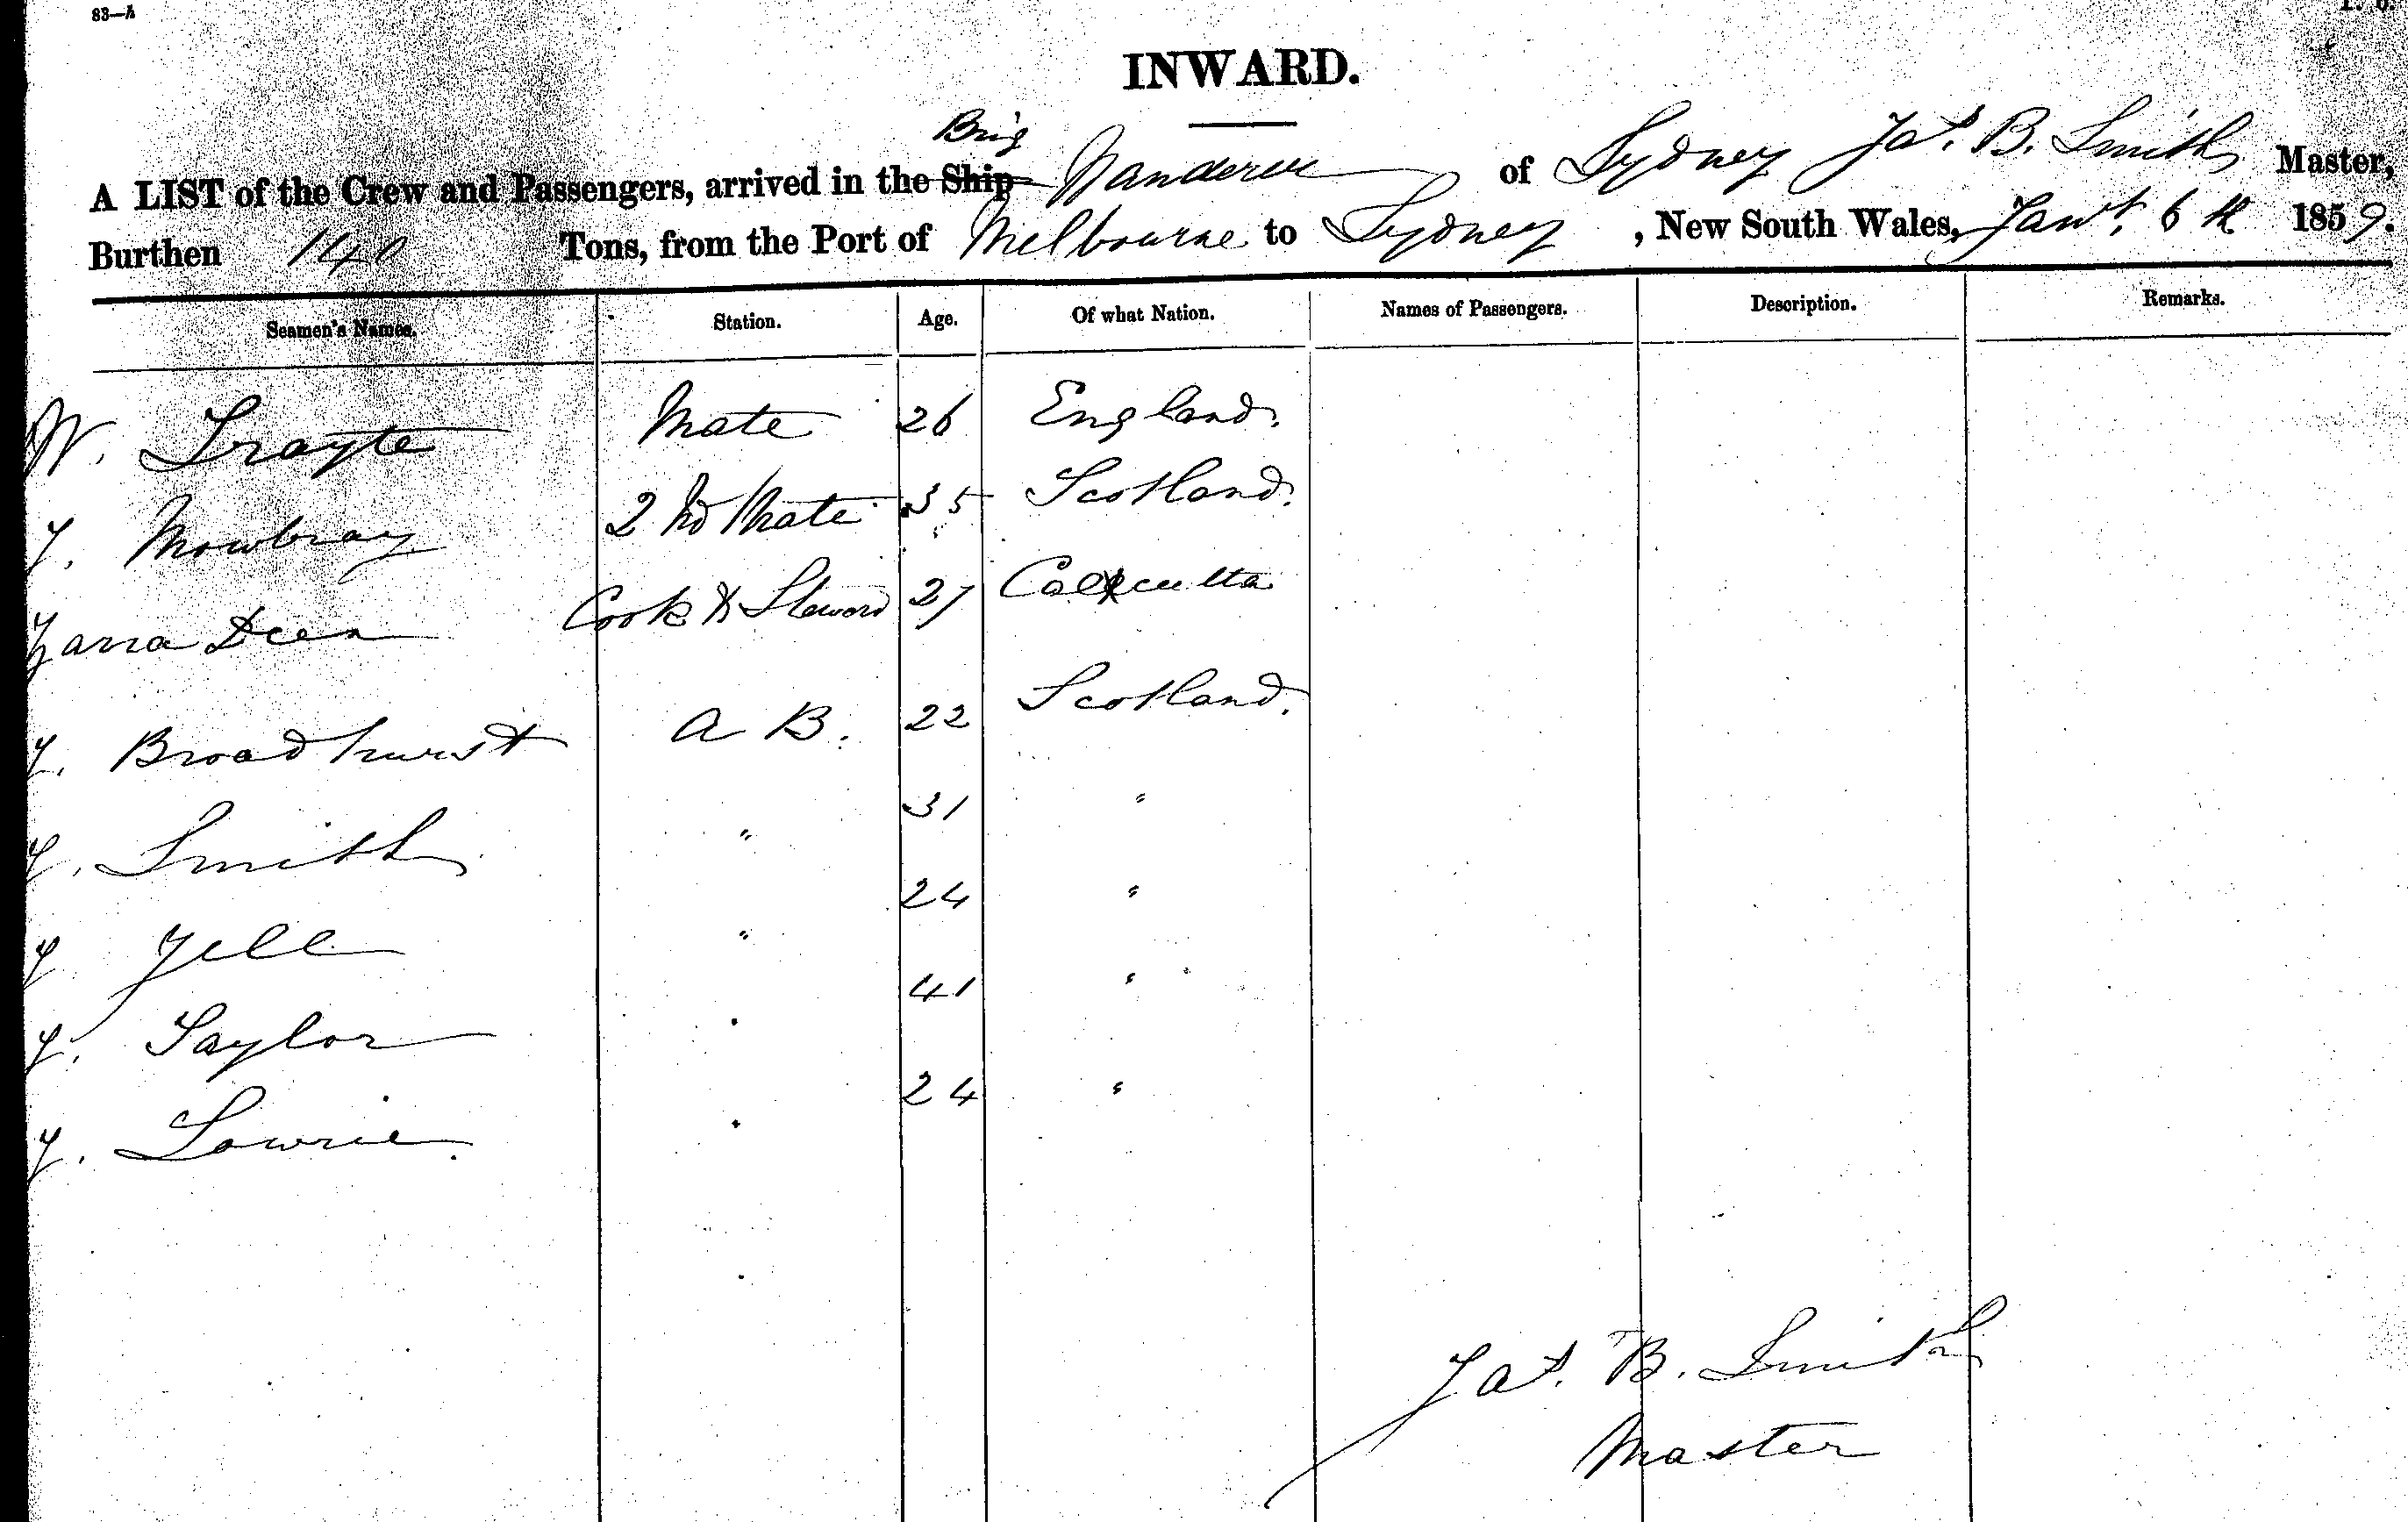 83—A
INWARD.
A LIST of the Crew and Passengers, arrived in the Ship Brig Wanderer of Sydney Jas. B. Smith Master,
Burthen 140 Tons, from the Port of Melbourne to Sydney, New South Wales, 6th 1859.
Seamen's Names. Station. Age. Of what Nation. Names of Passengers. Description. Remarks.
W. Mate 26 England.
J. Mowbray 2nd Mate 35 Scotland.
Deen Cook & Steward 27 Calcutta
J. Broadhurst A B. 22 Scotland.
J. Smith " 31 "
J. Jell " 24 "
J. Taylor " 41 "
J. Lowrie " 24 "
Jas. B. Smith
Master